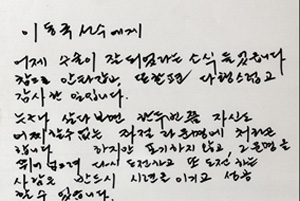 이동국 선수에게
어제 수술이 잘 되었다는 소식 들었습니다
참으로 안타깝고, 또 한편 다행스럽고
감사한 일입니다.
누구나 살다 보면 한두번쯤 자신도
어찌할 수 없는 좌절과 운명에 처하곤
합니다 하지만 포기하지 않고, 그 운명을
뛰어넘으려 다시 도전하고 또 도전하는
사람은 반드시 시련을 이기고 성공
할 수 있습니다.